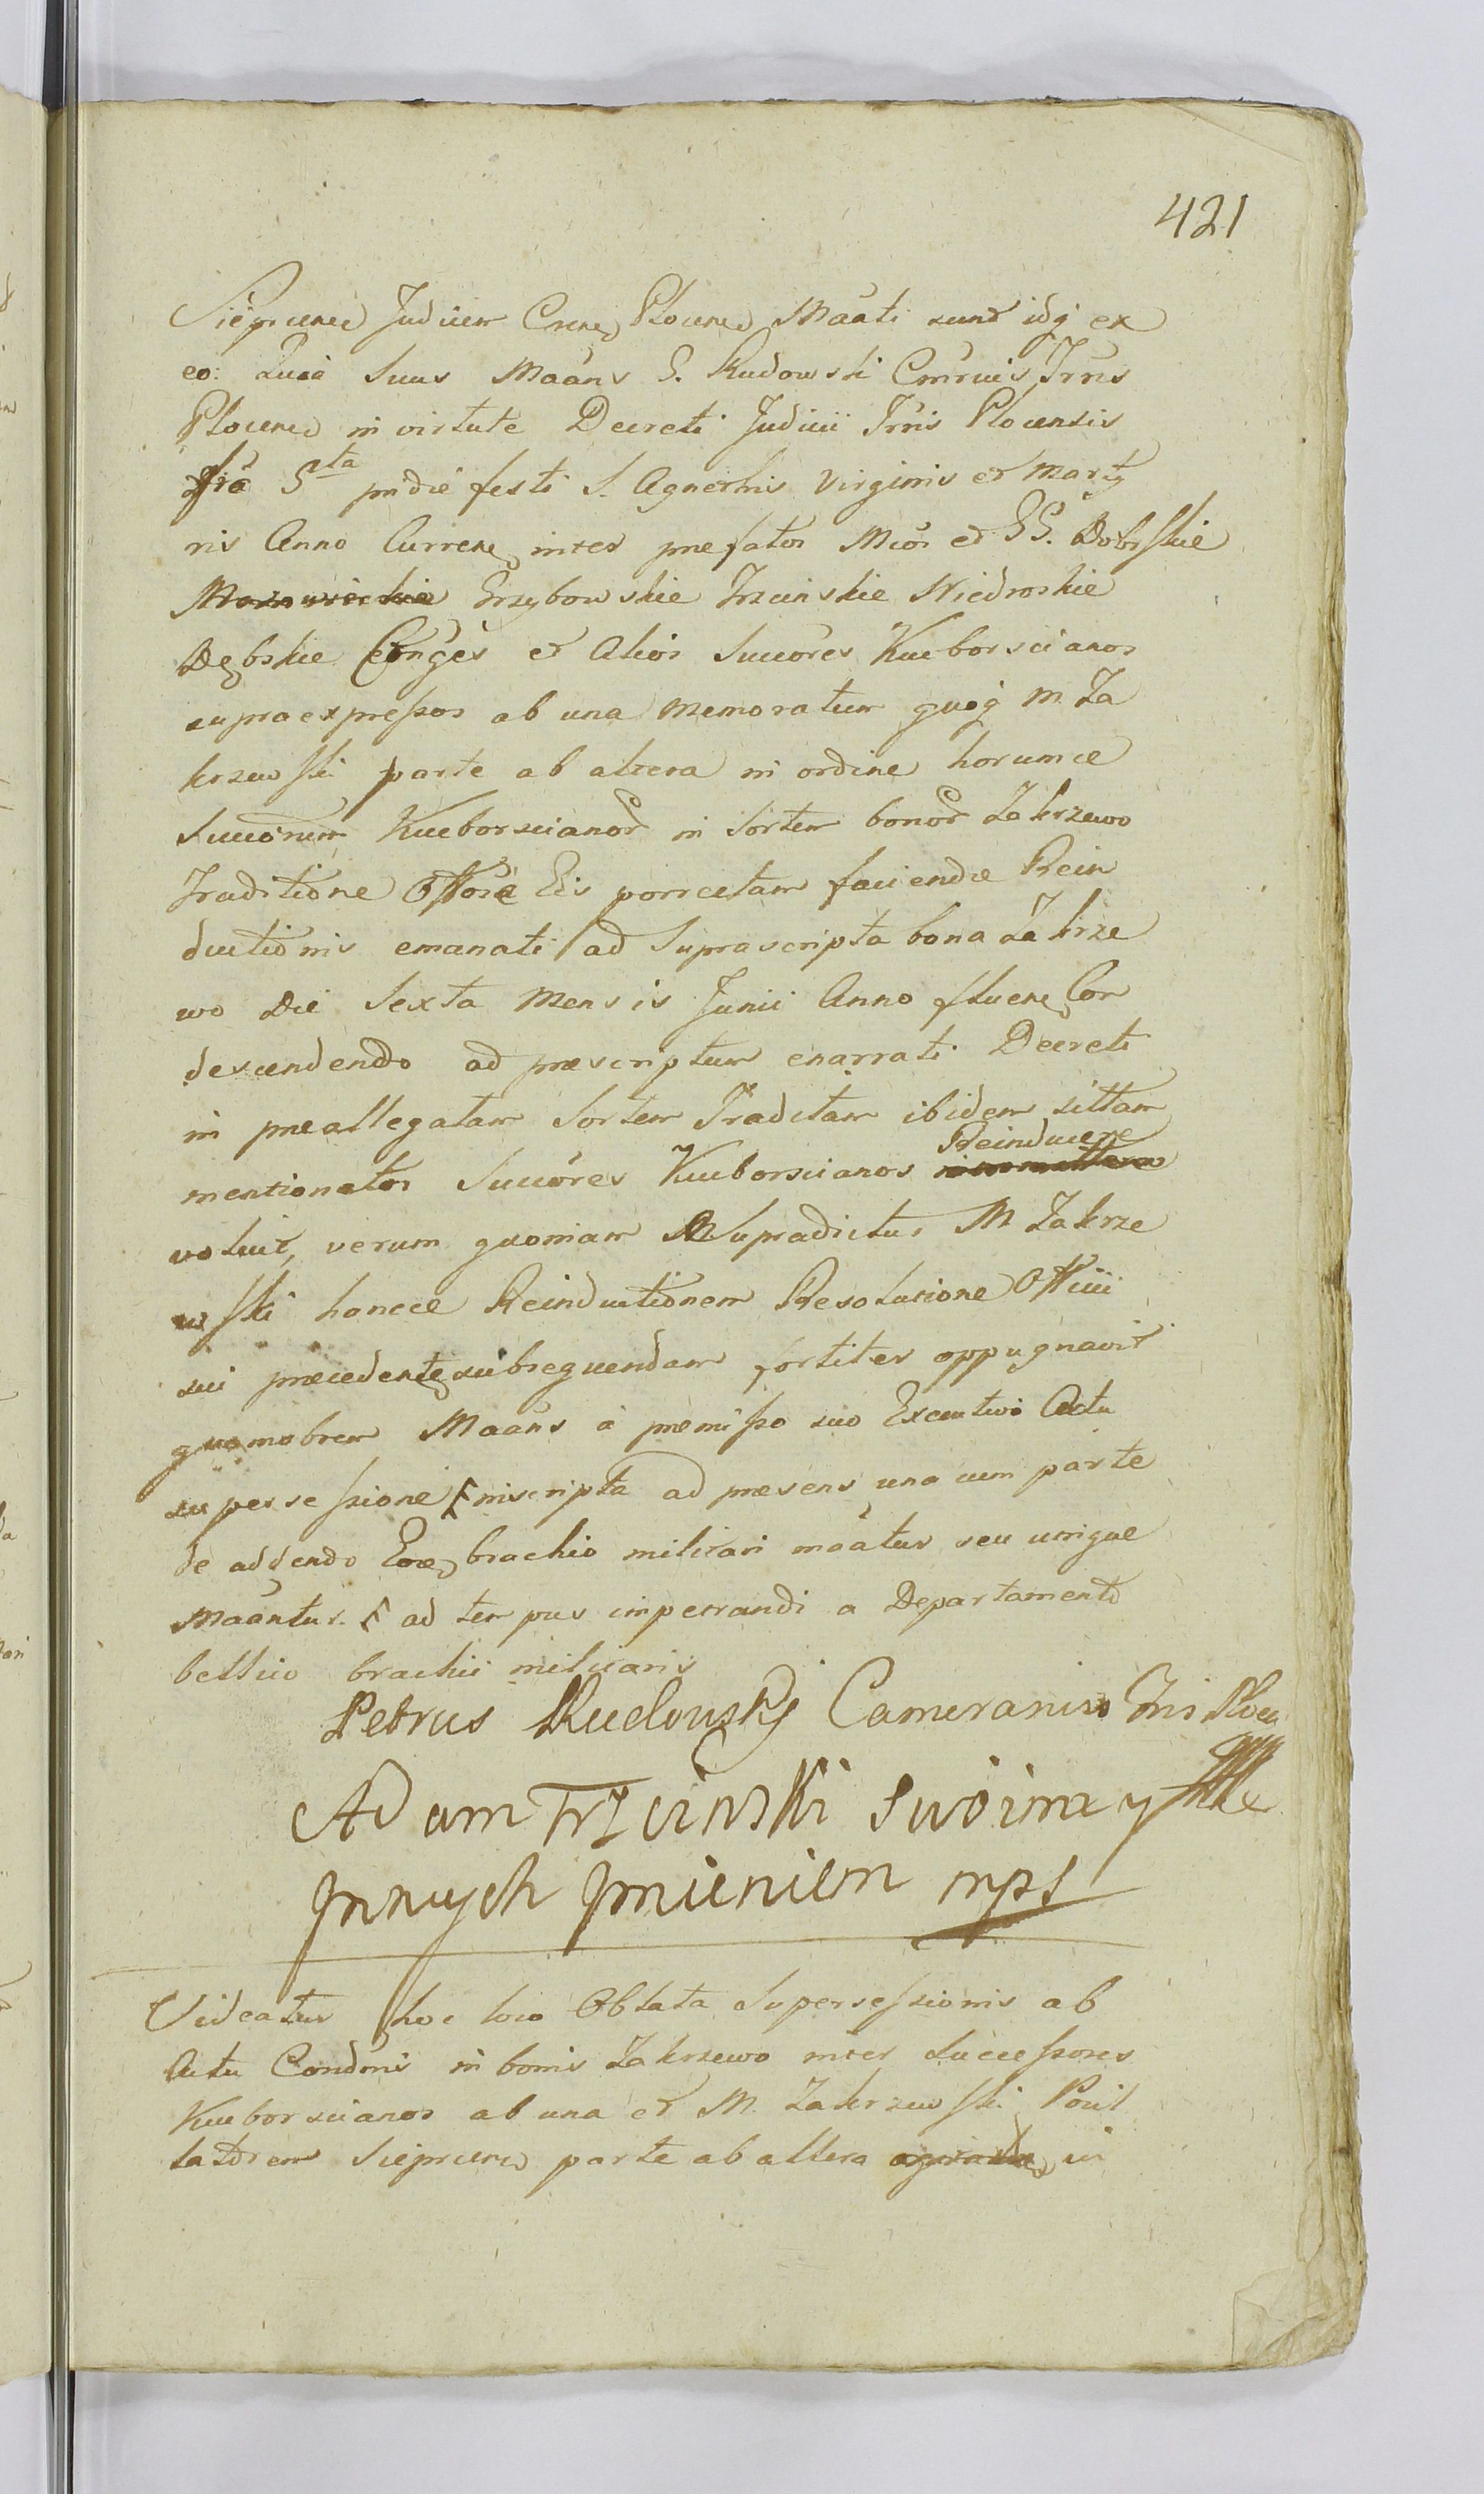 421
Sieprcens Judicem Crens Plocens Maãti sunt idq ex
eo: Quia Suus Maãns G. Rudowski Cmrius Trris
Plocens in virtute Decreti Judicii Trris Plocensis
fria 5ta pridie festi S. Agnethis Virginis et Marty
ris Anno Curren inter prefatos Mcos et GG. Dobrskie
Grzybowskie Trzcinskie Niedroskie
Dębskie Conges et Alios Succores Kucborscianos
supraexpressos ab una memoratum quoq M. Za
krzewski parte ab altera in ordine horumce
Succorum Kucborscianor in Sortem bonor Zakrzewo
Traditione Offosa Eis porrectam faciendæ Rein
ductionis emanati ad Suprascripta bona Zakrze
wo Die Sexta Mensis Junii Anno fluen Con
descendendo ad præscriptum enarrati Decreti
in preallegatam Sortem Traditam ibidem sittam
mentionatos Succores Kucborscianos Reinducere
voluit, verum quoniam Supradictus M Zakrze
wski hancce Reinductionem Resolutione Officii
sui præcedente subsequendam fortiter oppugnavit
quamobrem Maãns a premisso suo Executivo Actu
supersessione inscripta ad præsens una cum parte
de addendo brachio militari maãtur seu utrique
Maãntur. ad tempus impetrandi a Departamento
bellico brachii militaris
Petrus Rudowsky Camerarius Tris Ploc
Adam Trzcinski swoim y
Innych Imieniem mps
Videatur hoc loco Oblata Supersessionis ab
Actu Condnis in bonis Zakrzewo inter Successores
Kucborscianos ab una et M. Zakrzewski Pocil
latorem Sieprcens parte ab altera in